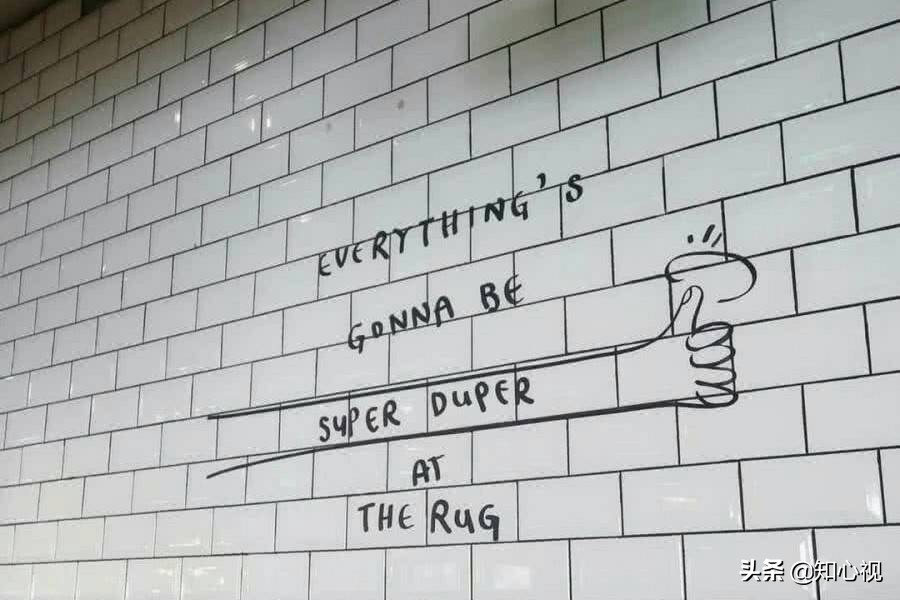 EVERYTHING'S
GONNA BE
SUPER DUPER
AT
THE RUG
头条 @知心视